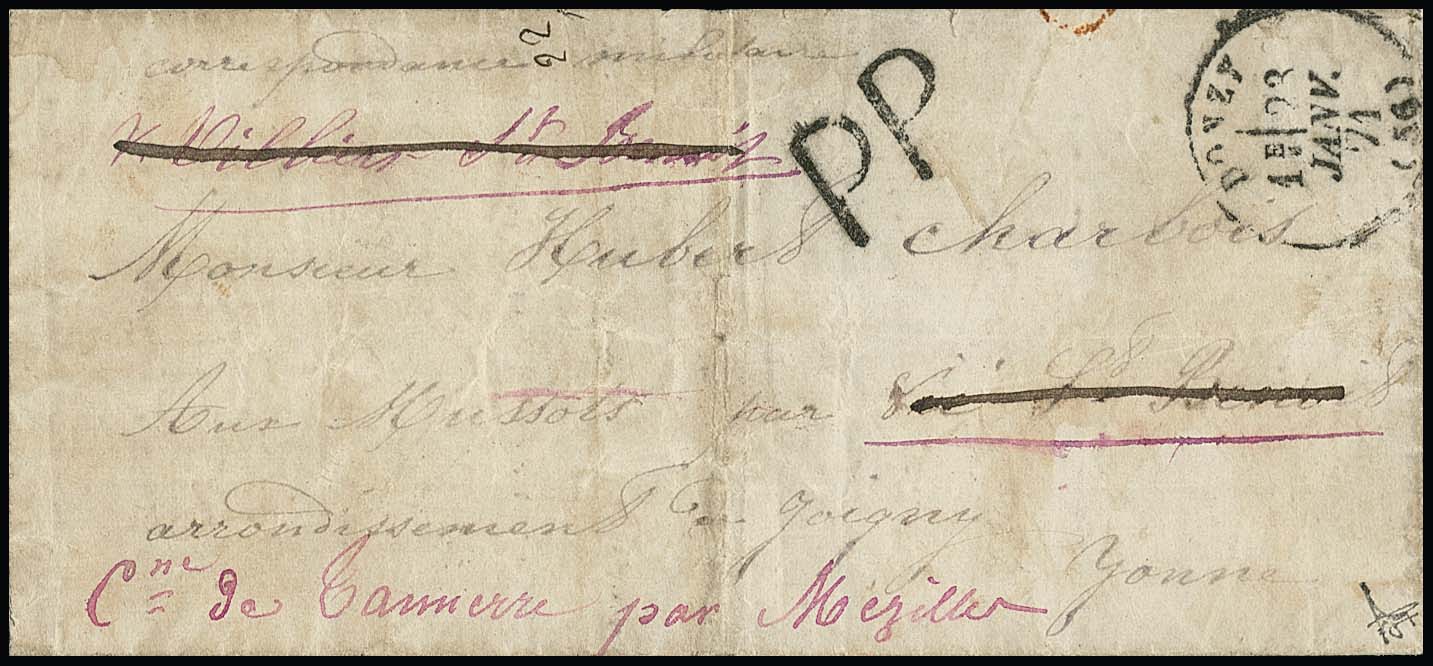 22
correspondance militaire
x Villiers St Benoit
PP
DONZY
1E
23
JANV.
71
(56)
Monsieur Hubert charbois
Aux Mussots par St Benoit
arrondissement de Joigny
Yonne
Cne de Tannerre par Mézilles